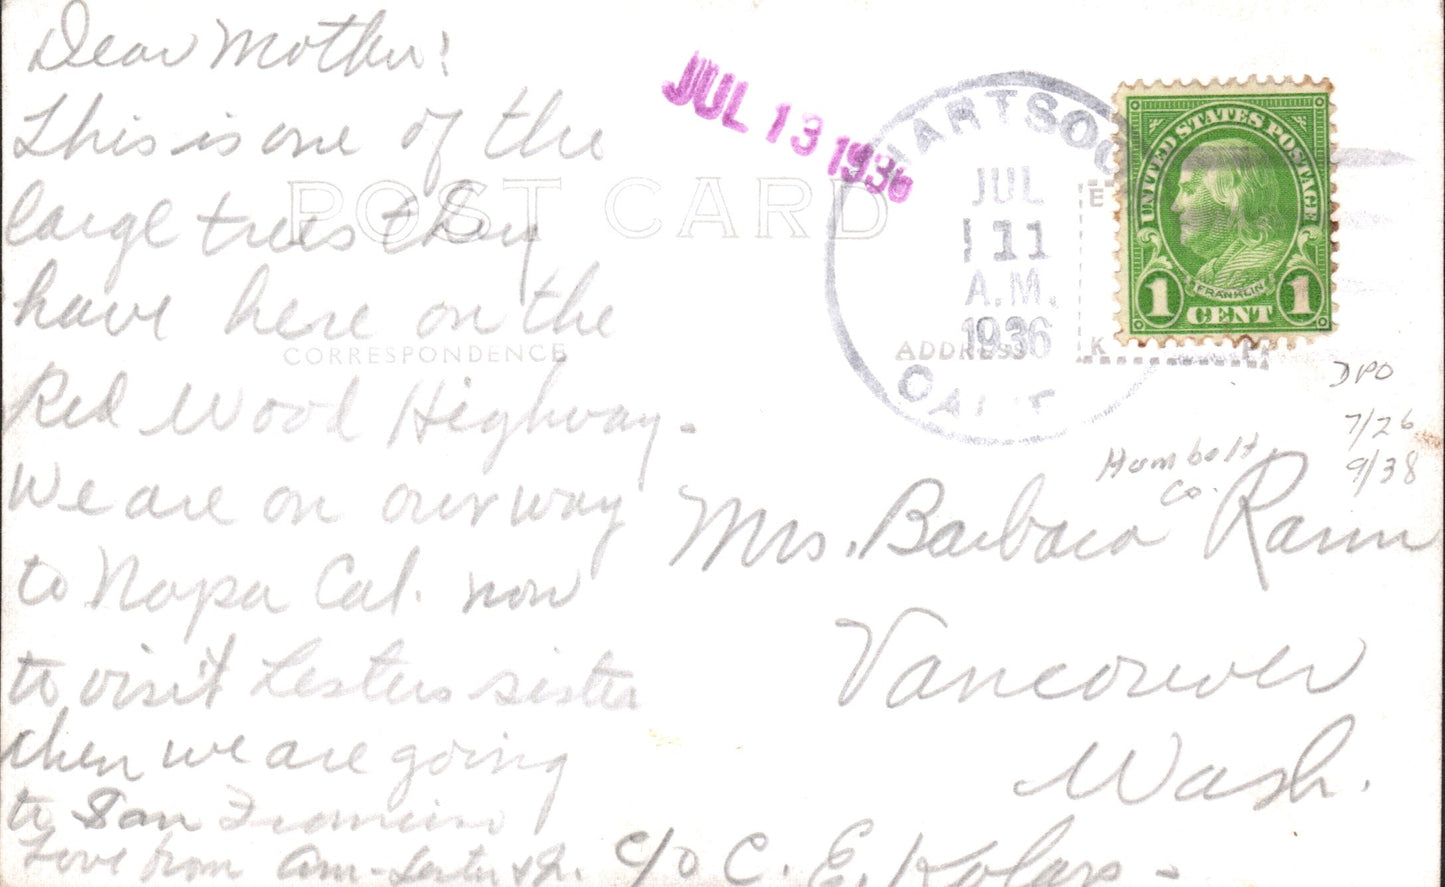 Dear Mother!
This is one of the
large trees they
have here on the
Red Wood Highway.
We are on our way
to Napa Cal. now
to visit Lesters sister
then we are going
to San Francisco
Love from
POST CARD
CORRESPONDENCE
ADDRESS
JUL 13 1936
HARTSOO
JUL
11
A.M.
1936
CALIF
UNITED STATES POSTAGE
FRANKLIN
1 CENT 1
DPO
7/26
9/38
Humbolt
Co.
Mrs. Barbara
Vancouver
Wash.
c/o C. E.